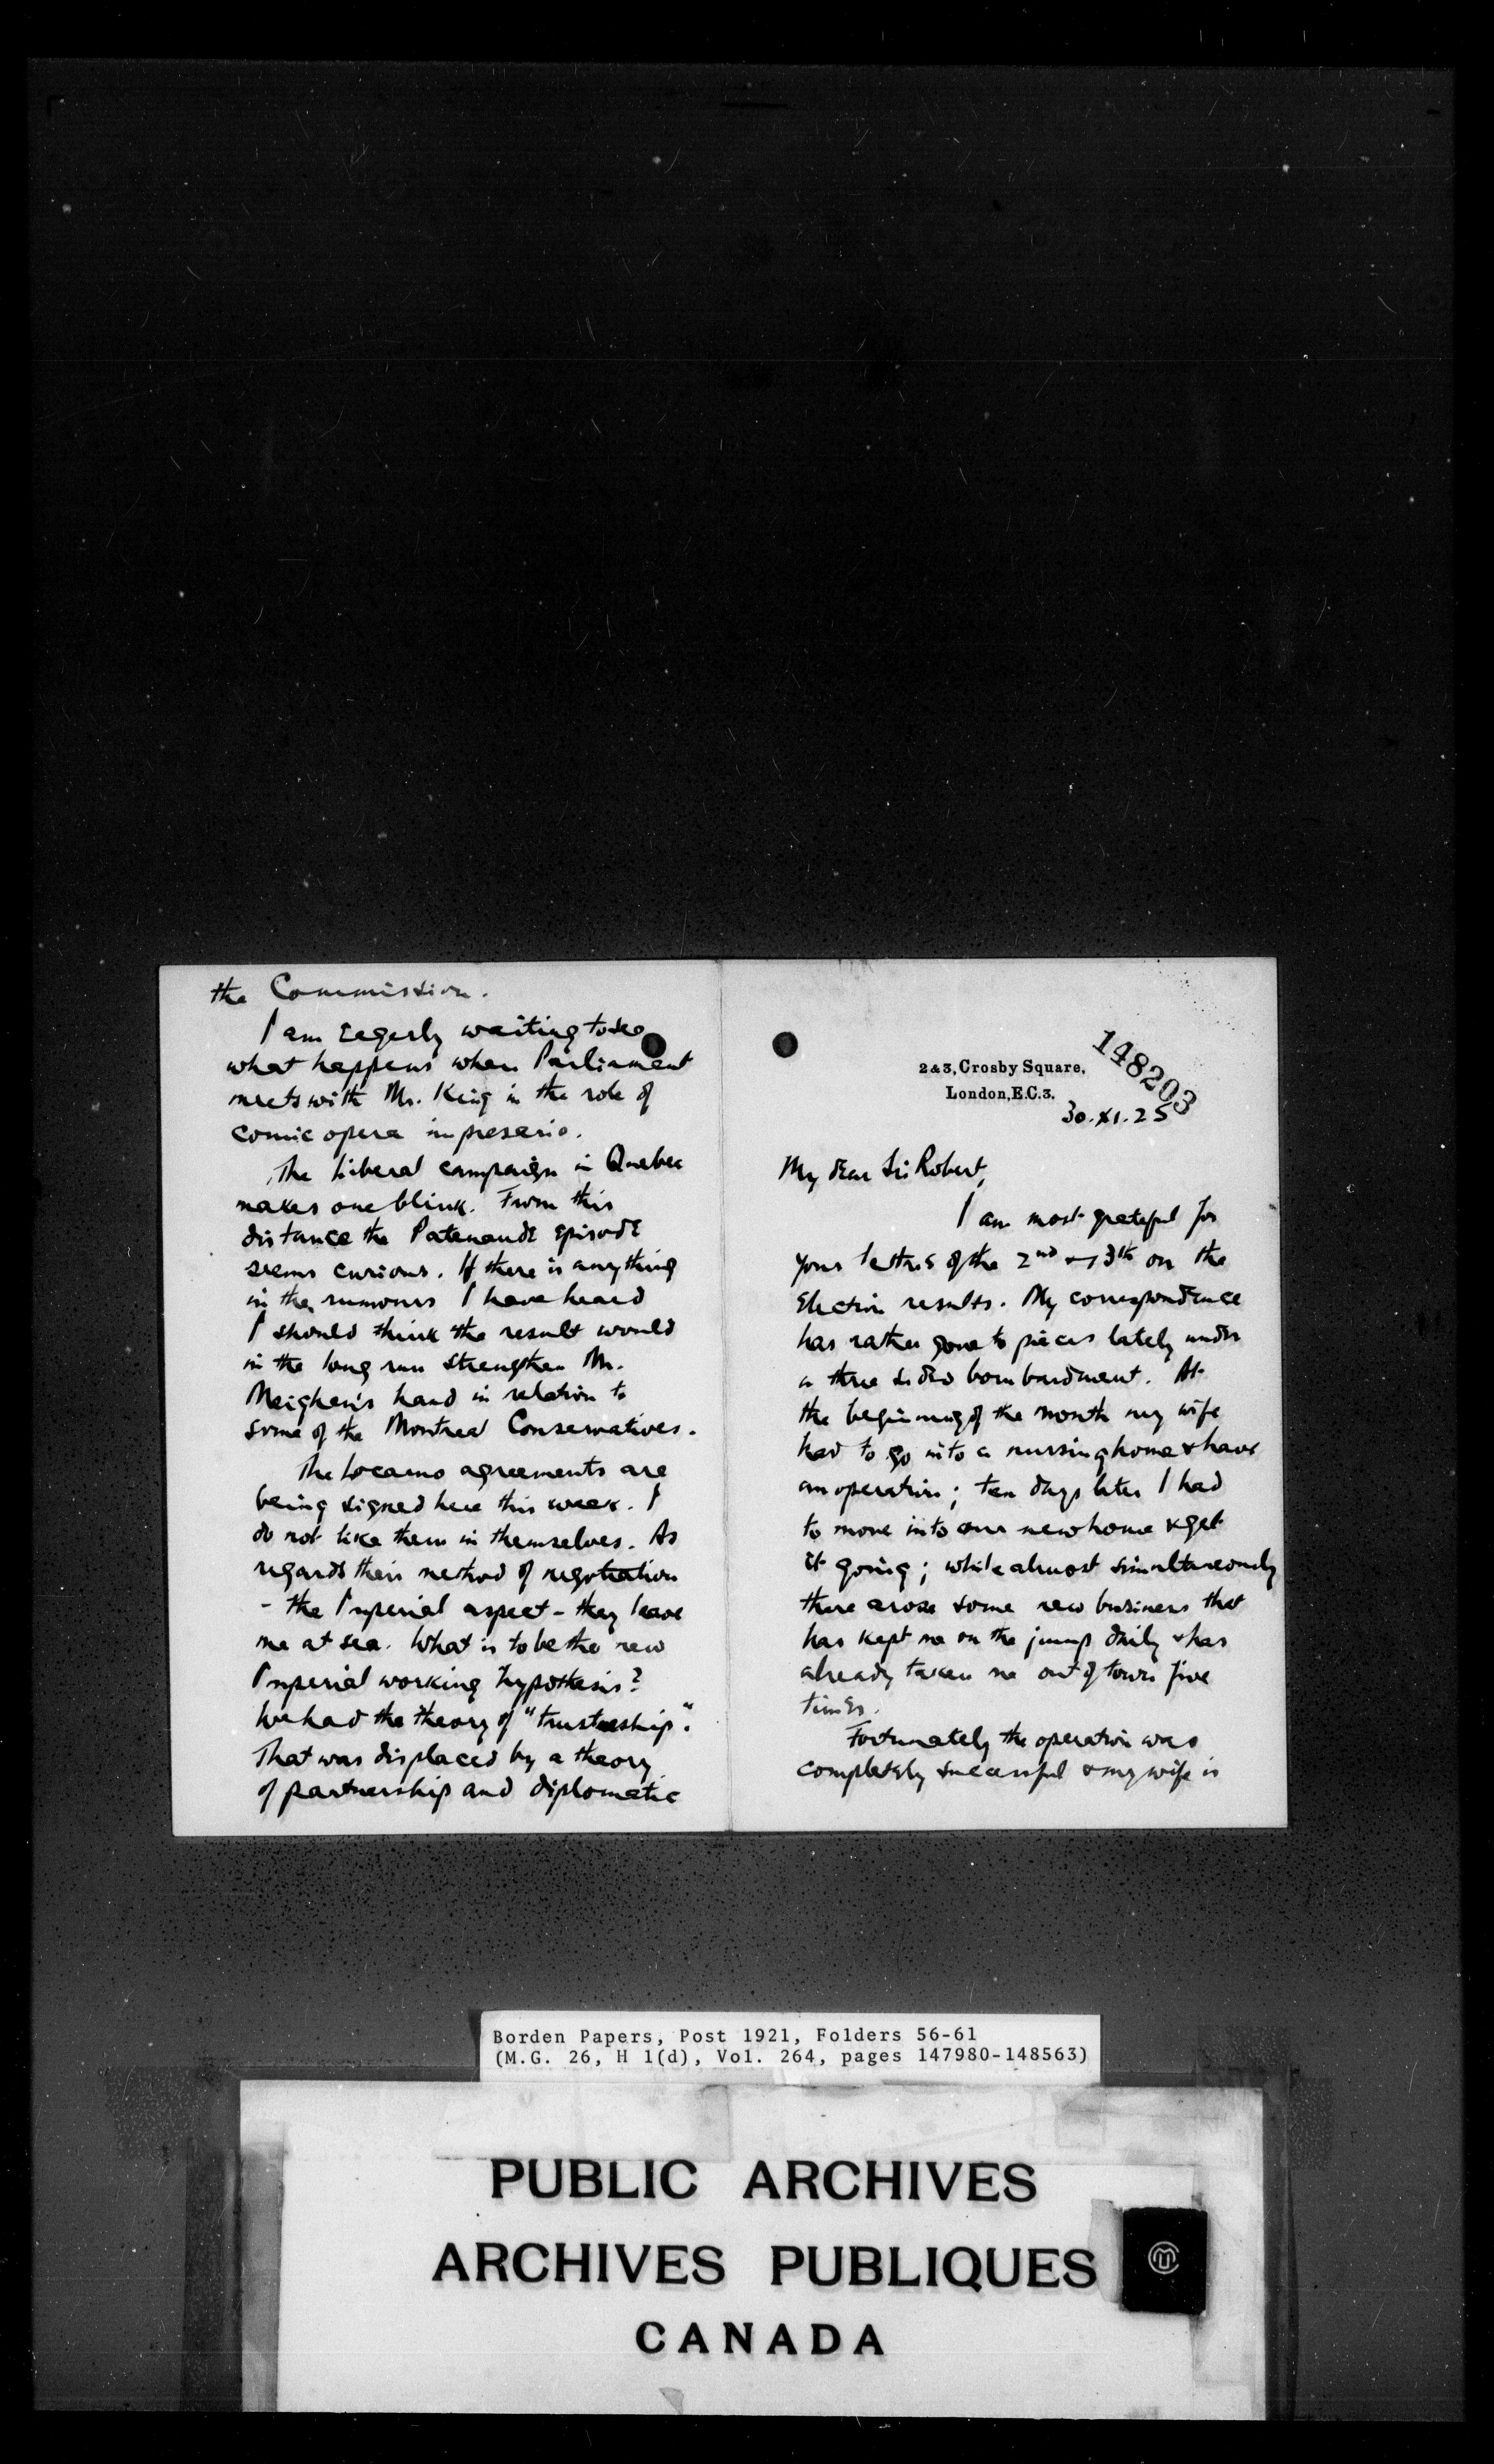 the Commission.
I am eagerly waiting to see
what happens when Parliament
meets with Mr. King in the role of
comic opera impresario.
The Liberal campaign in Quebec
makes one blink. From this
distance the Patenaude episode
seems curious. If there is anything
in the rumours I have heard
I should think the result would
in the long run strengthen Mr.
Meighen's hand in relation to
some of the Montreal Conservatives.
The Locarno agreements are
being signed here this week. I
do not like them in themselves. As
regards their method of negotiation
- the Imperial aspect - they leave
me at sea. What is to be the new
Imperial working hypothesis?
We had the theory of "trusteeship".
That was displaced by a theory
of partnership and diplomatic
148203
2 & 3, Crosby Square,
London, E.C.3.
30.XI.25
My dear Sir Robert,
I am most grateful for
your letters of the 2nd & 13th on the
Election results. My correspondence
has rather gone to pieces lately under
a three sided bombardment. At
the beginning of the month my wife
had to go into a nursing home & have
an operation; ten days later I had
to move into our new home & get
it going; while almost simultaneously
there arose some new business that
has kept me on the jump daily & has
already taken me out of town five
times.
Fortunately the operation was
completely successful & my wife is
Borden Papers, Post 1921, Folders 56-61
(M.G. 26, H 1(d), Vol. 264, pages 147980-148563)
PUBLIC ARCHIVES
ARCHIVES PUBLIQUES
CANADA